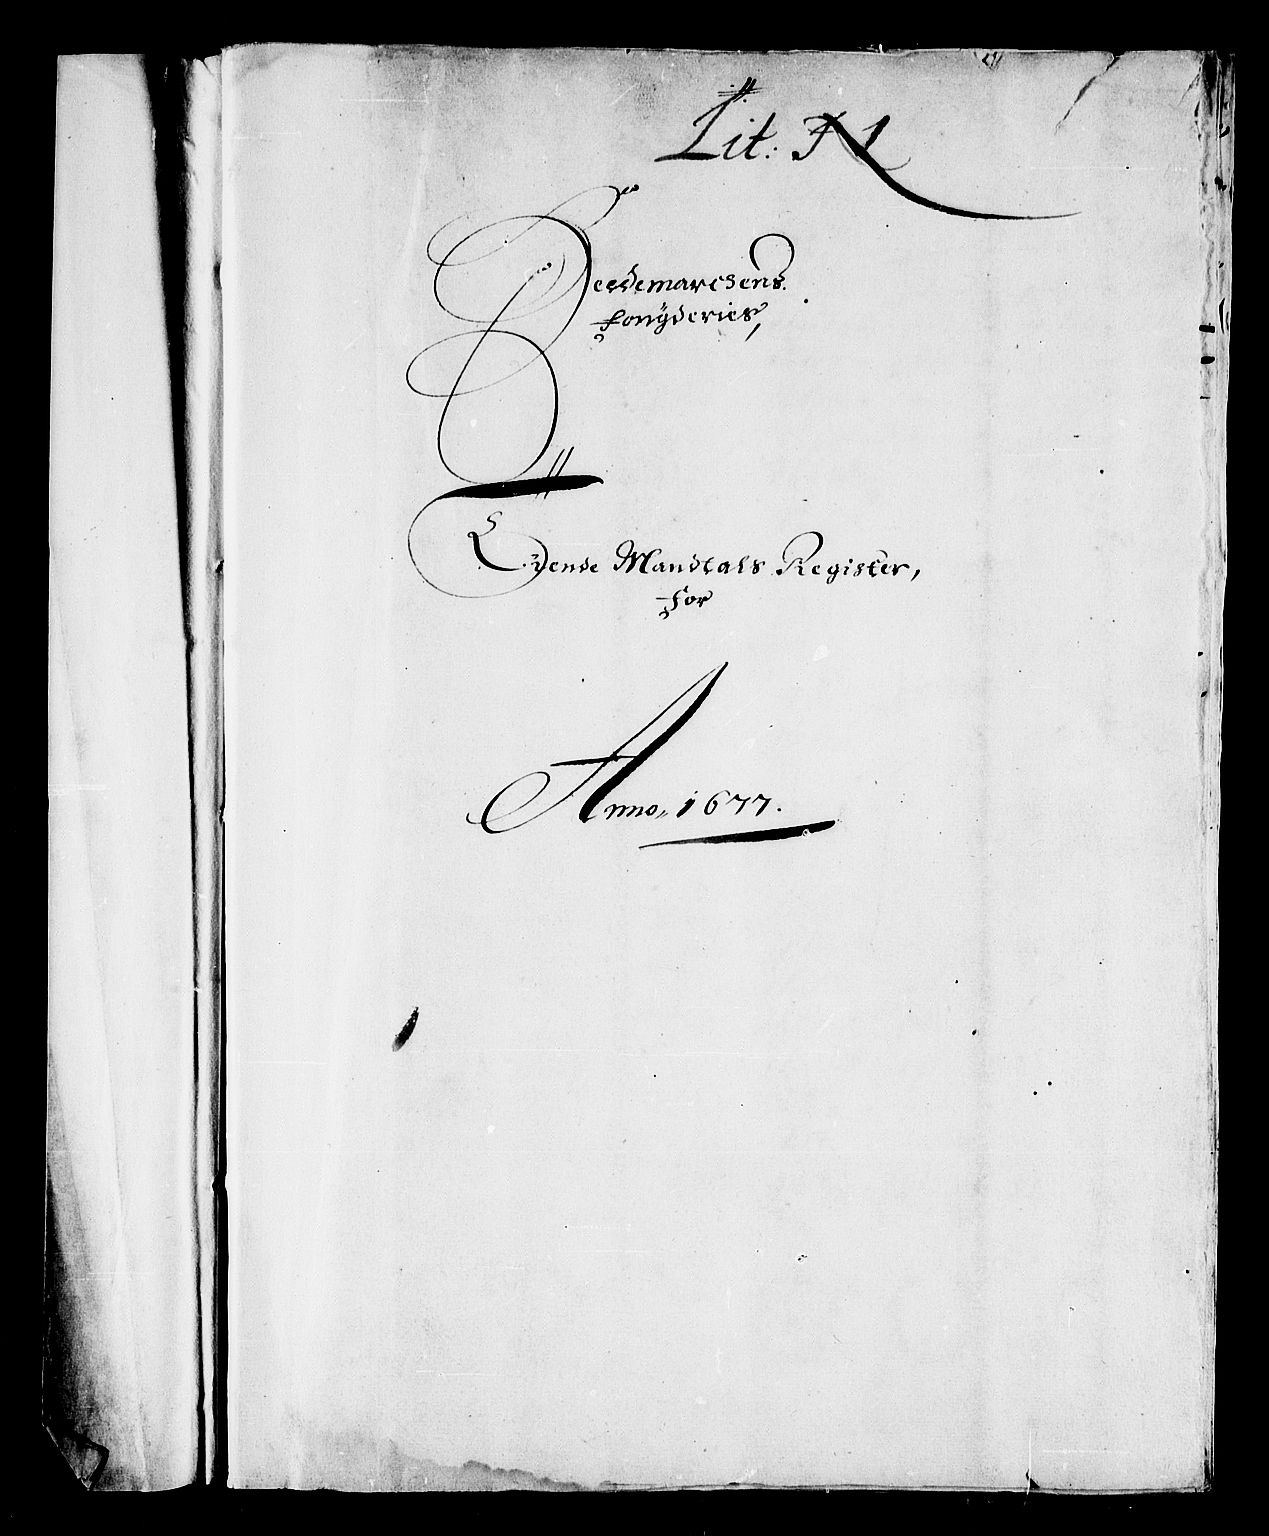 Lit: N
Hedemarckens
Fougderies,
Tiende Mandtals Register,
For
Anno, 1677.